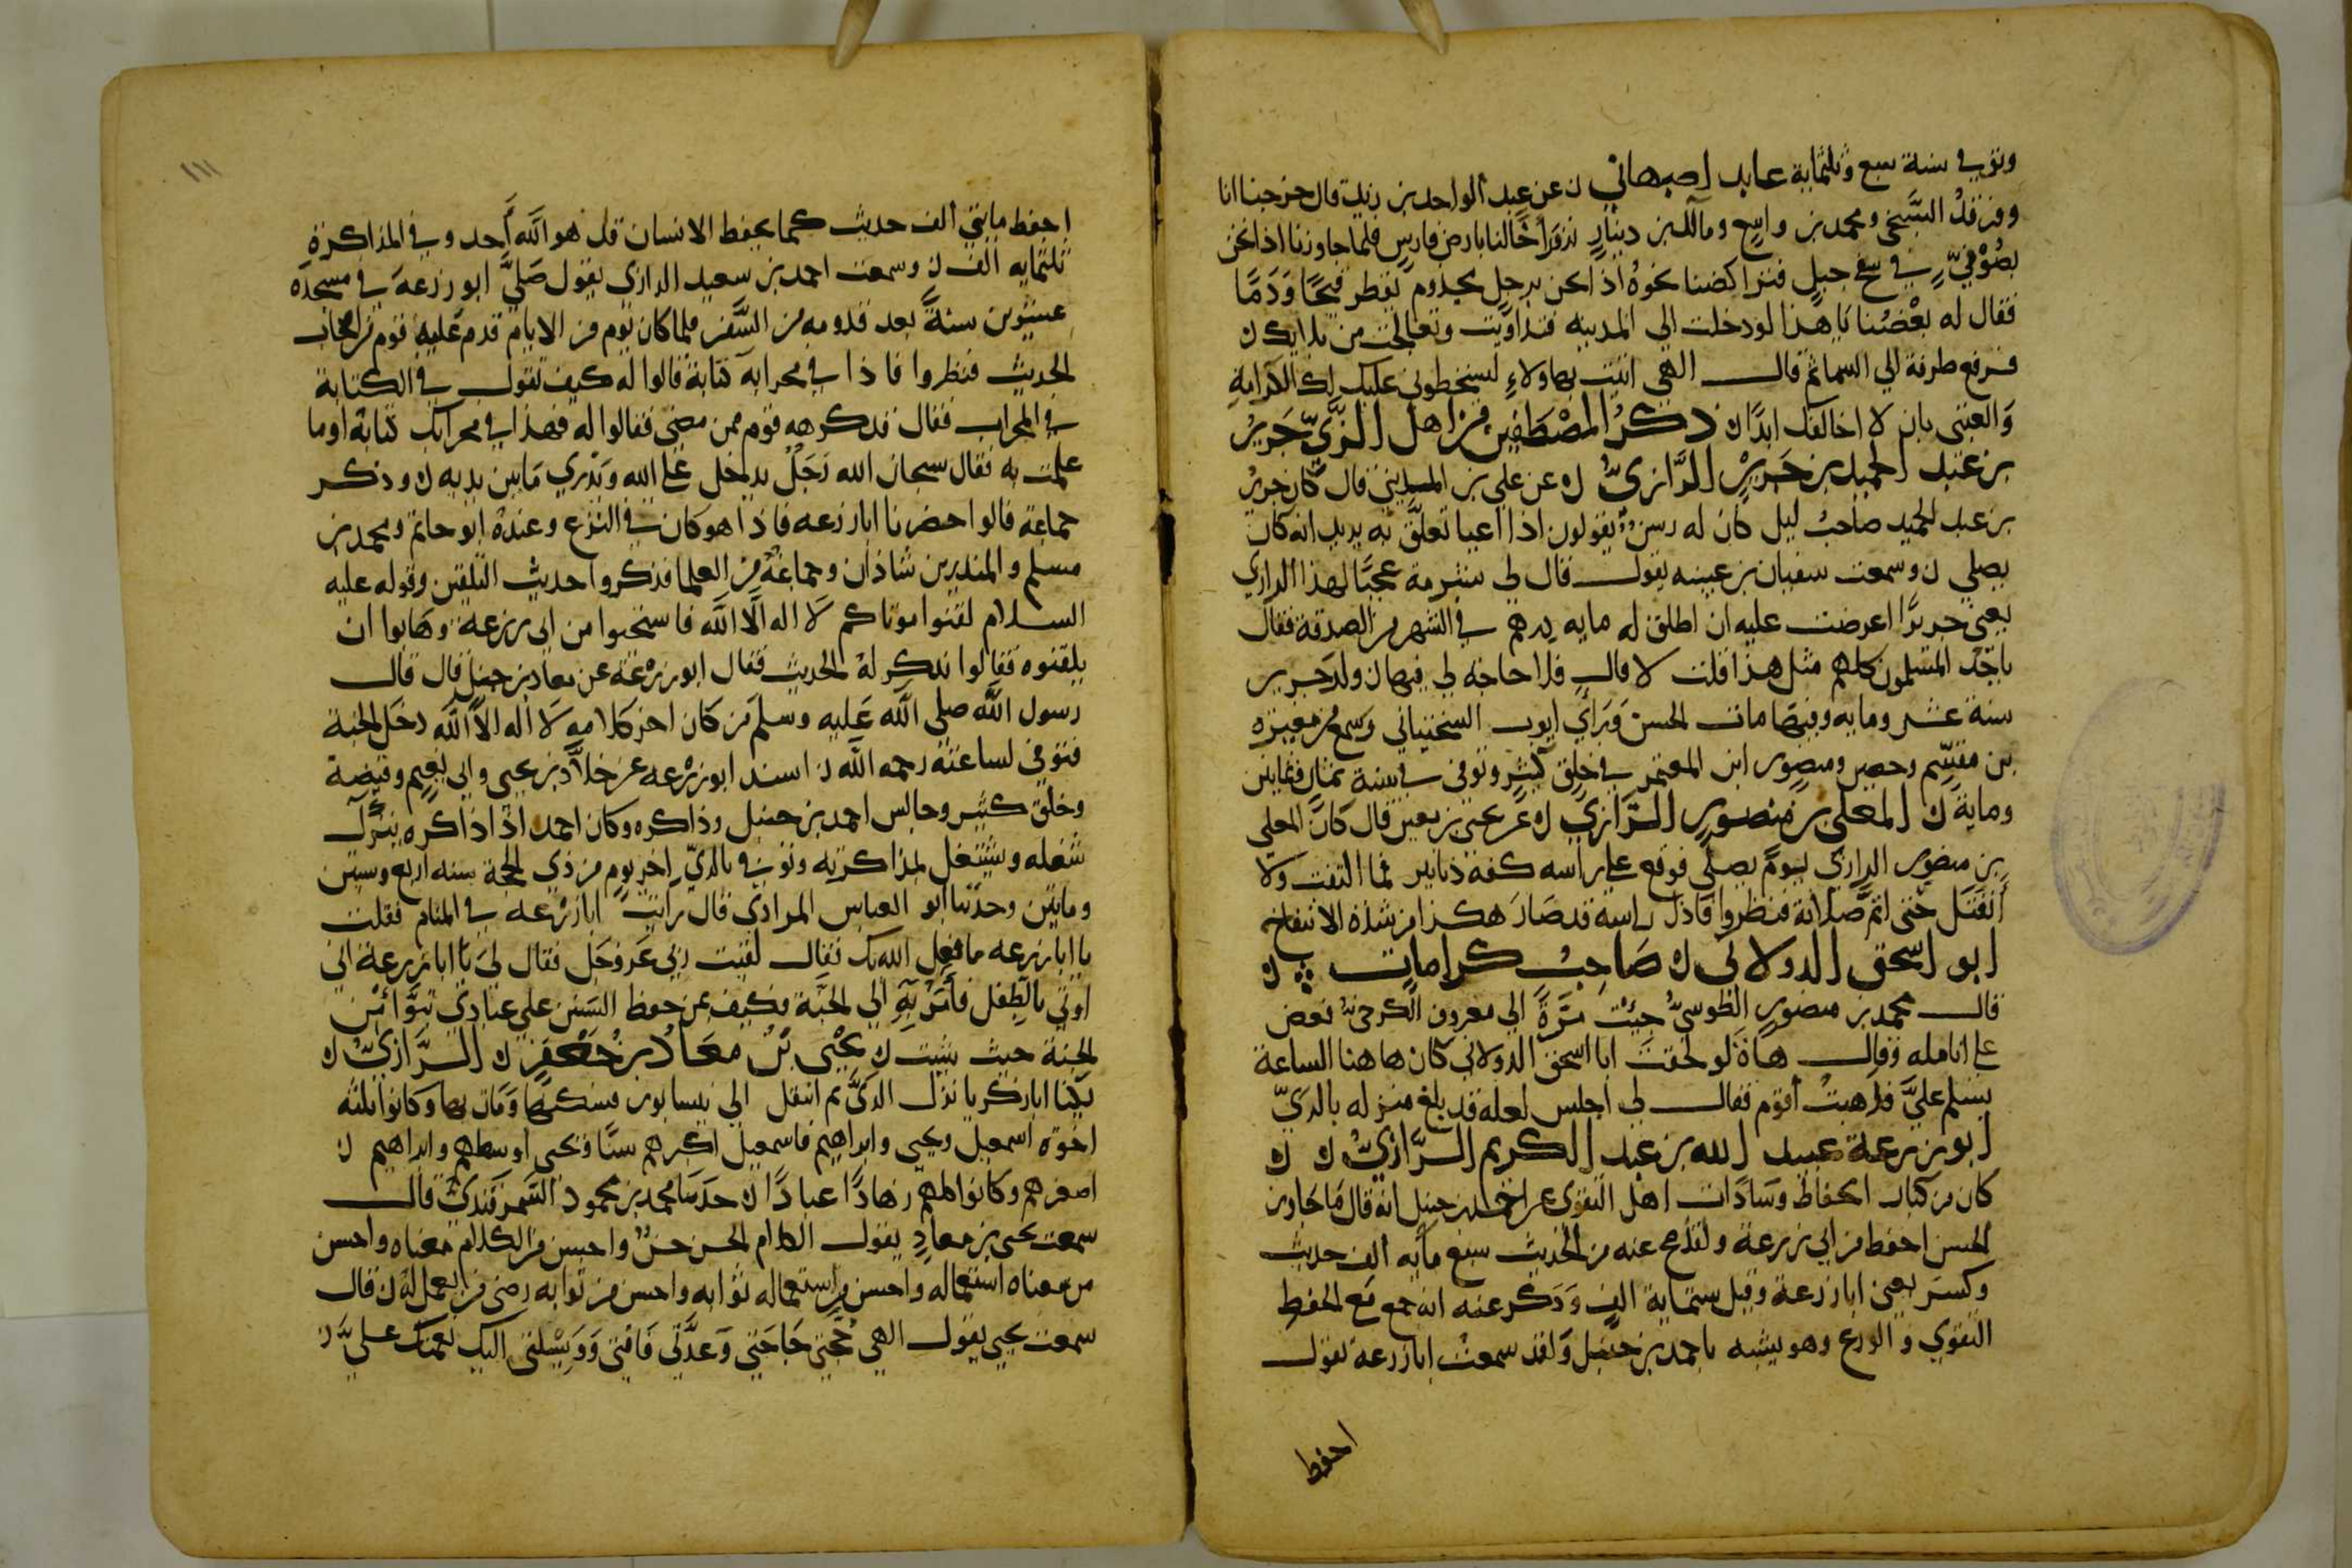 وتوفي سنة سبع وثلثماية عابد اصبهاني ن عن عبد الواحد بن زيد قال خرجنا انا
وفرقد السبخي ومحمد بن واسع ومالك بن دينار نزور اخا لنا بارض فارس فلما جاوزنا اذا نحن
بضوء في سفح جبل فتراكضنا نحوه اذا نحن برجل مجذوم تقطر قيحا ودما
فقال له بعضنا يا هذا لو دخلت الي المدينه فتداويت وتعالجت من بلايك ن
فرفع طرفه الي السما ثم قال الهي اتيت بهاولاء ليسخطوني عليك لك الكرامة
والعتبى بان لا اخالفك ابدا ن ذكر المصطفين من اهل الري جرير
بن عبد الحميد بن جرير الرازي ن عن علي بن المديني قال كان جرير
بن عبد الحميد صاحب ليل كان له رسن يقولون اذا اعيا تعلق به يريد انه كان
يصلي ن وسمعت سفيان بن عيينه يقول قال لي شبرمة عجبا لهذا الرازي
يعني جريرا اعرضت عليه ان اطلق له مايه درهم في الشهر من الصدقة فقال
ياخذ المسلمون كلهم مثل هذا قلت لا قال فلا حاجه لي فيها ن ولد جرير
سنة عشر ومايه وفيها مات الحسن وراي ايوب السختياني وسمع من مغيره
بن مقسم وحصين ومنصور ابن المعتمر في خلق كثير وتوفي في سنة ثمان وثمانين
وماية ن المعلى بن منصور الرازي ن عن يحيى بن معين قال كان المعلي
بن منصور الرازي يوما يصلي فوقع علي راسه كفة ذنابير فما التفت ولا
انفتل حتى اتم صلاته فنظروا فاذا راسه قد صار هكذا من شدة الانتفاخ
ابو اسحق الدولابي ن صاحب كرامات ن
قال محمد بن منصور الطوسي جيئت مرة الي معروف الكرخي فعض
على انامله وقال هاه لو لحقت ابا اسحق الدولابي كان هاهنا الساعة
يسلم علي فذهبت اقوم فقال لي اجلس لعله قد بلغ منزله بالري
ابو زرعة عبيد الله بن عبد الكريم الرازي ن ن
كان من كبار الحفاظ وسادات اهل التقوى عن احمد بن حنبل انه قال ما جاوز
الجسر احفظ من ابي زرعة ولقد صح عنه من الحديث سبع مايه الف حديث
وكسر يعني ابا زرعة وقيل ستماية الف وذكر عنه انه جمع مع الحفظ
التقوي والورع وهو يشبه باحمد بن حنبل ولقد سمعت ابا زرعة يقول
احفظ
١١١
احفظ مايتي الف حديث كما يحفظ الانسان قل هو الله احد وفي المذاكرة
ثلثمايه الف ن وسمعت احمد بن سعيد الرازي يقول صلى ابو زرعة في مسجده
عشرين سنة بعد قدومه من السفر فلما كان يوم من الايام قدم عليه قوم من اصحاب
الحديث فنظروا فاذا في محرابه كتابة فقالوا له كيف تقول في الكتابة
في المحراب فقال قد كرهه قوم ممن مضى فقالوا له فهذا في محرابك كتابة اوما
علمت به فقال سبحان الله رجل يدخل على الله ويدري ما بين يديه ن وذكر
جماعة قالوا حضرنا ابا زرعه فاذا هو كان في النزع وعنده ابو حاتم ومحمد بن
مسلم والمنذر بن شاذان وجماعة من العلما فذكروا حديث التلقين وقوله عليه
السلام لقنوا موتاكم لا اله الا الله فاستحيوا من ابي زرعة وهابوا ان
يلقنوه فقالوا نذكر له الحديث فقال ابو زرعة عن معاذ بن جبل قال قال
رسول الله صلى الله عليه وسلم من كان اخر كلامه لا اله الا الله دخل الجنة
فتوفي لساعته رحمه الله ن اسند ابو زرعه عن خلاد بن يحيى وابي نعيم وقبيصة
وخلق كثير وجالس احمد بن حنبل وذاكره وكان احمد اذا ذاكره يترك
شغله ويشتغل لمذاكرته وتوفي بالري اخر يوم من ذي الحجة سنه اربع وستين
ومايتين وحدثنا ابو العباس المرادي قال رايت ابا زرعه في المنام فقلت
يا ابا زرعه ما فعل الله بك فقال لقيت ربي عز وجل فقال لي يا ابا زرعة اني
اوتي بالطفل فامر به الي الجنة فكيف بمن حفظ السنن علي عبادي تبوا من
الجنة حيث شيت ن يحيى بن معاذ بن جعفر ن الرازي ن
يكنا ابا زكريا نزل الري ثم انتقل الي نيسابور فسكنها ومات بها وكانوا ثلثه
اخوه اسمعيل ويحيى وابراهيم فاسمعيل اكبرهم سنا ويحيى اوسطهم وابراهيم ن
اصغرهم وكانوا كلهم زهادا عبادا ن حدثنا محمد بن محمود السمرقندي قال
سمعت يحيى بن معاذ يقول الكلام الحسن حسن واحسن من الكلام معناه واحسن
من معناه استعماله واحسن من استعماله ثوابه واحسن من ثوابه رضى من يعمل له ن قال
سمعت يحيى يقول الهي حجتي حاجتي وعدتي فاقتي ووسيلتي اليك نعمتك علي ن